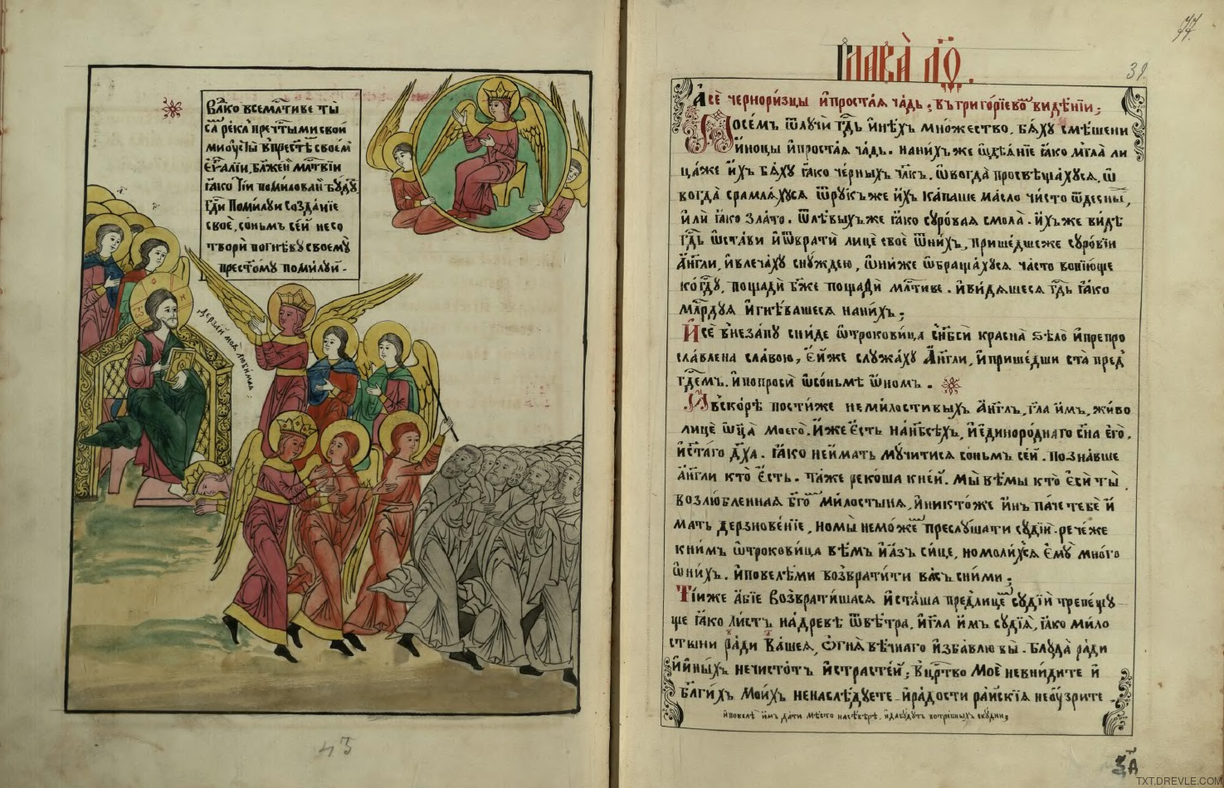 Влⷣко всемлⷭ҇тиве ты
сѧ река преч҇тыми свои
ми оу҆сты в престѣ своемъ
є҆ѵⷢ҇алїи, бл҃жени млⷭ҇твїи
ꙗко тїи помиловани будꙋ
гдⷭ҇и помилуи созданїе
своѐ, соньмъ се́й не со
твори̑ по гнѣву своему
престо́му поми́луй.
дерзай моѧ любимаѧ
77.
Глава̀ л҃ѳ.
39.
А сѐ черноризцы и҆простаѧ чадь, въ григорїевѣ видѣнїи;
Посе́мъ ѿлучи̑ гдⷭ҇ь и҆нѣхъ мно́жество. бѧ́ху смѣшени
и҆ноцы и҆простаѧ чадь. на ни́хъ же ѡ҆дѣѧнїе ꙗко мгла̀ ли
ца́ же и҆́хъ бѧху ꙗко че́рныхъ чл҃къ. ѡ҆вогда̀ просвѣща́хусѧ, ѡ҆
вогда̀ срамлѧ́хусѧ ѿ рукъ же и҆́хъ ка́паше ма́сло чи́сто ѿ десны̑,
и҆лѝ ꙗко зла́то. ѿ лѣвыхъ же ꙗко суро́ваѧ смола̀. и҆́хъ же ви́дѣ
гдⷭ҇ь ѡ҆ста́ви и҆ ѿврати̑ лицѐ своѐ ѿ ни́хъ, прише́дше же суро́вїи
а҆́нгл҃и, и҆ влеча́ху с ну́ждею, ѡ҆ни́ же ѡ҆браща́хусѧ ча́сто вопїю́ще
ко гдⷭ҇у, пощади̑ бж҃е пощади̑ млⷭ҇тиве. и҆ ви́дѧшесѧ гдⷭ҇ь ꙗко
млⷭ҇рдуѧ и҆ гнѣ́вашесѧ на ни́хъ;
И҆ сѐ внеза́пу сни́де ѻ҆трокови́ца с нб҃си̑ красна̀ ѕѣло̀ и҆ препро
сла́влена сла́вою, є҆́й же служа́ху а҆́нгл҃и, и҆ прише́дши ста̀ предъ
гдⷭ҇емъ. и҆ попроси̑ ѡ҆ со́ньмѣ ѻ҆номъ.
И҆ вско́рѣ пости́же неми́лостивыхъ а҆́нгл҃ъ, гл҃а и҆́мъ, жи́во
лицѐ ѻ҆ц҃а̀ моего̀. и҆́же є҆́сть на нб҃сѣхъ, и҆ є҆диноро́днаго сн҃а є҆го̀.
и҆ ст҃а́го дх҃а. ꙗко не и҆́мать мучи́тисѧ со́ньмъ се́й. позна́вше
а҆́нгл҃и кто̀ є҆́сть. та́же реко́ша к не́й. мы̀ вѣ́мы кто̀ є҆си̑ ты̀.
возлю́бленнаѧ бг҃омъ ми́лостынѧ, и҆ никто́же и҆́нъ па́че тебѐ и҆́
мать дерзнове́нїе, но мы̀ не мо́жемъ преслу́шати судїи̑. рече́ же
к ни́мъ ѻ҆трокови́ца вѣ́мъ и҆ а҆́зъ си́це, но моли́хсѧ є҆му̀ мно́го
ѡ҆ ни́хъ. и҆ повелѣ̀ ми возврати́ти ва́съ с ни́ми;
Ті́и же а҆́бїе возврати́шасѧ и҆ ста́ша пред̾ лице́мъ судїи̑ трепе́щу
ще ꙗко ли́стъ на дре́вѣ ѿ вѣ́тра. и҆ гл҃а и҆́мъ судїѧ̀, ꙗко ми́ло
стыни ра́ди ва́шеѧ, ѻ҆гнѧ̀ вѣ́чнаго и҆зба́влю вы̀. блуда̀ ра́ди
и҆ и҆ны́хъ нечисто́тъ и҆ страсте́й; в црⷭ҇тво моѐ не вни́дите и҆
бл҃ги́хъ мои́хъ не наслѣ́дуете. и҆ ра́дости ра́йскїѧ не оу҆́зрите
и҆ повелѣ̀ и҆́мъ да́ти мѣ́сто на сѣ́верѣ. и҆ да бу́дутъ потре́бныхъ ску́дни;
43
TXT.DREVLE.COM